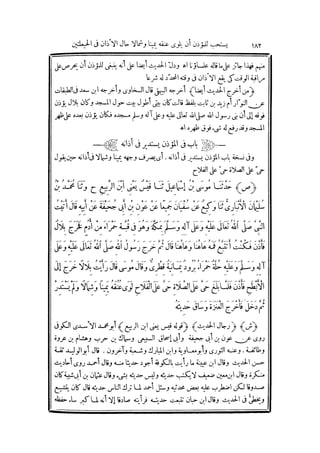 ١٨٢ يستحب للمؤذن أن يلوى عنقه يمينا وشمالا حال الأذان فى الحيعلتين
منهم فهذا جائز على ما قاله علماؤنا اه ودل الحديث أيضا على أنه ينبغى للمؤذن أن يحرص على
مراقبة الوقت كى يقع الأذان فى وقته المحدد له شرعا
﴿من أخرج الحديث أيضا﴾ أخرجه البيهقى قال السخاوى وأخرجه ابن سعد فى الطبقات
عن النوار أم زيد بن ثابت بلفظ قالت كان بيتى أطول بيت حول المسجد وكان بلال يؤذن
فوقه إلى أن بنى رسول الله صلى الله تعالى عليه وعلى آله وسلم مسجده فكان يؤذن بعده على ظهر
المسجد وقد رفع له شىء فوق ظهره اه
باب فى المؤذن يستدير فى أذانه
وفى نسخة باب المؤذن يستدير فى أذانه. أى يصرف وجهه يمينا وشمالا فى أذانه حين يقول
حى على الصلاة حى على الفلاح
﴿ص﴾ حَدَّثَنَا مُوسَى بْنُ إِسْمَاعِيلَ ثَنَا قَيْسٌ يَعْنِى ابْنَ الرَّبِيعِ ح وَثَنَا مُحَمَّدُ بْنُ
سُلَيْمَانَ الْأَنْبَارِىُّ ثَنَا وَكِيعٌ عَنْ سُفْيَانَ جَمِيعًا عَنْ عَوْنِ بْنِ أَبِى جُحَيْفَةَ عَنْ أَبِيهِ قَالَ أَتَيْتُ
النَّبِىَّ صَلَّى اللهُ تَعَالَى عَلَيْهِ وَعَلَى آلِهِ وَسَلَّمَ بِمَكَّةَ وَهُوَ فِى قُبَّةٍ حَمْرَاءَ مِنْ أَدَمٍ فَخَرَجَ بِلَالٌ
فَأَذَّنَ فَكُنْتُ أَتَتَبَّعُ فَمَهُ هَاهُنَا وَهَاهُنَا قَالَ ثُمَّ خَرَجَ رَسُولُ اللهِ صَلَّى اللهُ تَعَالَى عَلَيْهِ وَعَلَى
آلِهِ وَسَلَّمَ وَعَلَيْهِ حُلَّةٌ حَمْرَاءُ بُرُودٌ يَمَانِيَةٌ قِطْرِىٌّ وَقَالَ مُوسَى قَالَ رَأَيْتُ بِلَالًا خَرَجَ إِلَى
الْأَبْطَحِ فَأَذَّنَ فَلَمَّا بَلَغَ حَىَّ عَلَى الصَّلَاةِ حَىَّ عَلَى الْفَلَاحِ لَوَى عُنُقَهُ يَمِينًا وَشِمَالًا وَلَمْ يَسْتَدِرْ
ثُمَّ دَخَلَ فَأَخْرَجَ الْعَنَزَةَ وَسَاقَ حَدِيثَهُ
﴿ش﴾ ﴿رجال الحديث﴾ ﴿قوله قيس يعنى ابن الربيع﴾ أبو محمد الأسدى الكوفى
روى عن عون بن أبى جحيفة وأبى إسحاق السبيعى وسماك بن حرب وهشام بن عروة
وطائفة. وعنه الثورى وأبو معاوية وابن المبارك وشعبة وآخرون. قال أبو الوليد ثقة
حسن الحديث وقال ابن عيينة ما رأيت بالكوفة أجود حديثا منه وقال أحمد روى أحاديث
منكرة وقال ابن معين ضعيف لا يكتب حديثه وليس حديثه بشىء وقال عثمان بن أبى شيبة كان
صدوقا لكن اضطرب عليه بعض حديثه وسئل أحمد لما ترك الناس حديثه قال كان يتشيع
ويخطئ فى الحديث وقال ابن حبان تتبعت حديثه فرأيته صادقا إلا أنه لما كبر ساء حفظه